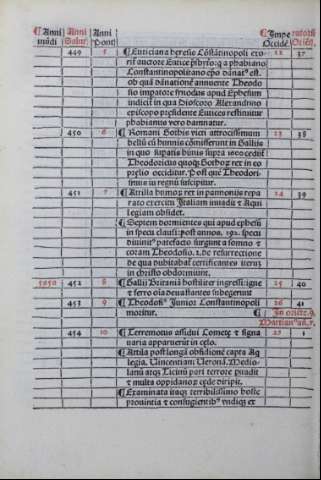 Anni mūdi Anni Salut. Anni Pont Impe Occidē ratorū Oriēt.
449 5 Euticiana heresis Cōstātinopoli exo 12 37
rif auctore Eutice pſbyro: q a phabiano
Constantinopolitano epo dānat⁹ est.
ob quā dānationē annuente Theodo
sio impatore synodus apud Ephesum
indicit̄ in qua Dioscoro Alexandrino
episcopo presidente Eutices restituitur
phabianus vero damnatur.
450 6 Romani Gothis vicū attrocissimum 13 38
bellū cū hunnis cōmisserunt in Gallijs
in quo supatis hūnis supra 1800 cecidet
Theodoricus quoq Gothoꝝ rex in eo
prelio occidit̄. Post quē Theodori
smus in regnū suscipitur.
451 7 Attilla hūnoꝝ rex in pannonijs repa 14 39
rato exercitu Italiam inuadit & Aqui
legiam obsidet.
Septem dormientes qui apud ephesū
in specu clausi: post annos. 192. specu
diuinit⁹ patefacto surgunt a somno &
coram Theodosio. 2. de resurrectione
de qua dubitabat̄ certificantes iterū
in christo obdormiunt.
5050 452 8 Gallij Britaniā hostiliter ingressi: igne 25 40
& ferro oīa deuastantes subegerunt
453 9 Theodosi⁹ Junior Constantinopoli 26 41
moritur. In oriēte. 9.
Martian⁹ an. 7.
454 10 Terremotus assidui Comete & signa 27 1
varia apparuerūt in celo.
Attila post longā obsidionē capta Aq
legia, Vincentiam Veronā. Medio
lanū atqꝫ Ticinū pari terrore inuadit
& multa oppidanoꝝ cede diripit.
Examinata itaqꝫ terribilissimo hoste
prouintia & confugientib⁹ vndiqꝫ ex